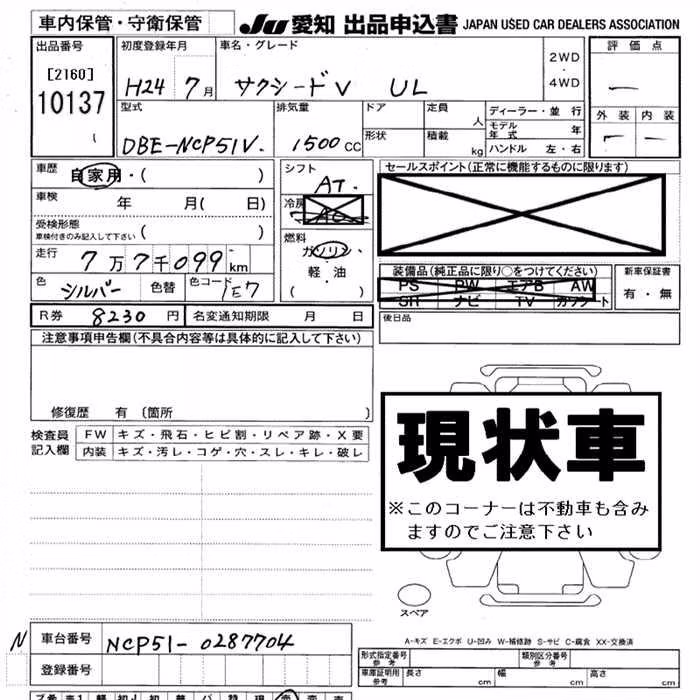 車内保管・守衛保管 JU 愛知 出品申込書 JAPAN USED CAR DEALERS ASSOCIATION
出品番号 初度登録年月 車名・グレード 評価点
[2160] H24 7月 サクシードV UL 2WD・4WD ー
10137 外装 内装
型式 排気量 ドア 定員 人 ディーラー・並行
DBE-NCP51V. 1500cc 形状 積載 kg モデル年式 年
ハンドル 左・右
車歴 自家用・( ) シフト AT. セールスポイント(正常に機能するものに限ります)
車検 年 月( 日) 冷房 AC
受検形態 車検付きのみ記入して下さい ( ) 燃料 ガソリン
走行 7万7千099km 軽・油
色 シルバー 色替 色コード 1E7 ( )
装備品(純品品に限り○をつけてください) 新車保証書
PS PW エアB AW 有・無
SR ナビ TV カワシート
R券 8230円 名変通知期限 月 日 後日品
注意事項申告欄(不具合内容等は具体的に記入して下さい)
修復歴 有 [箇所 ]
検査員記入欄 FW キズ・飛石・ヒビ割・リペア跡・X要
内装 キズ・汚レ・コゲ・穴・スレ・キレ・破レ
現状車
※このコーナーは不動車も含み
ますのでご注意下さい
スペア
A-キズ E-エクボ U-凹み W-補修跡 S-サビ C-腐食 XX-交換済
N 車台番号 NCP51-0287704
登録番号
形式指定番号 参考 類別区分番号 参考
車庫証明用 参考 長さ cm 幅 cm 高さ cm